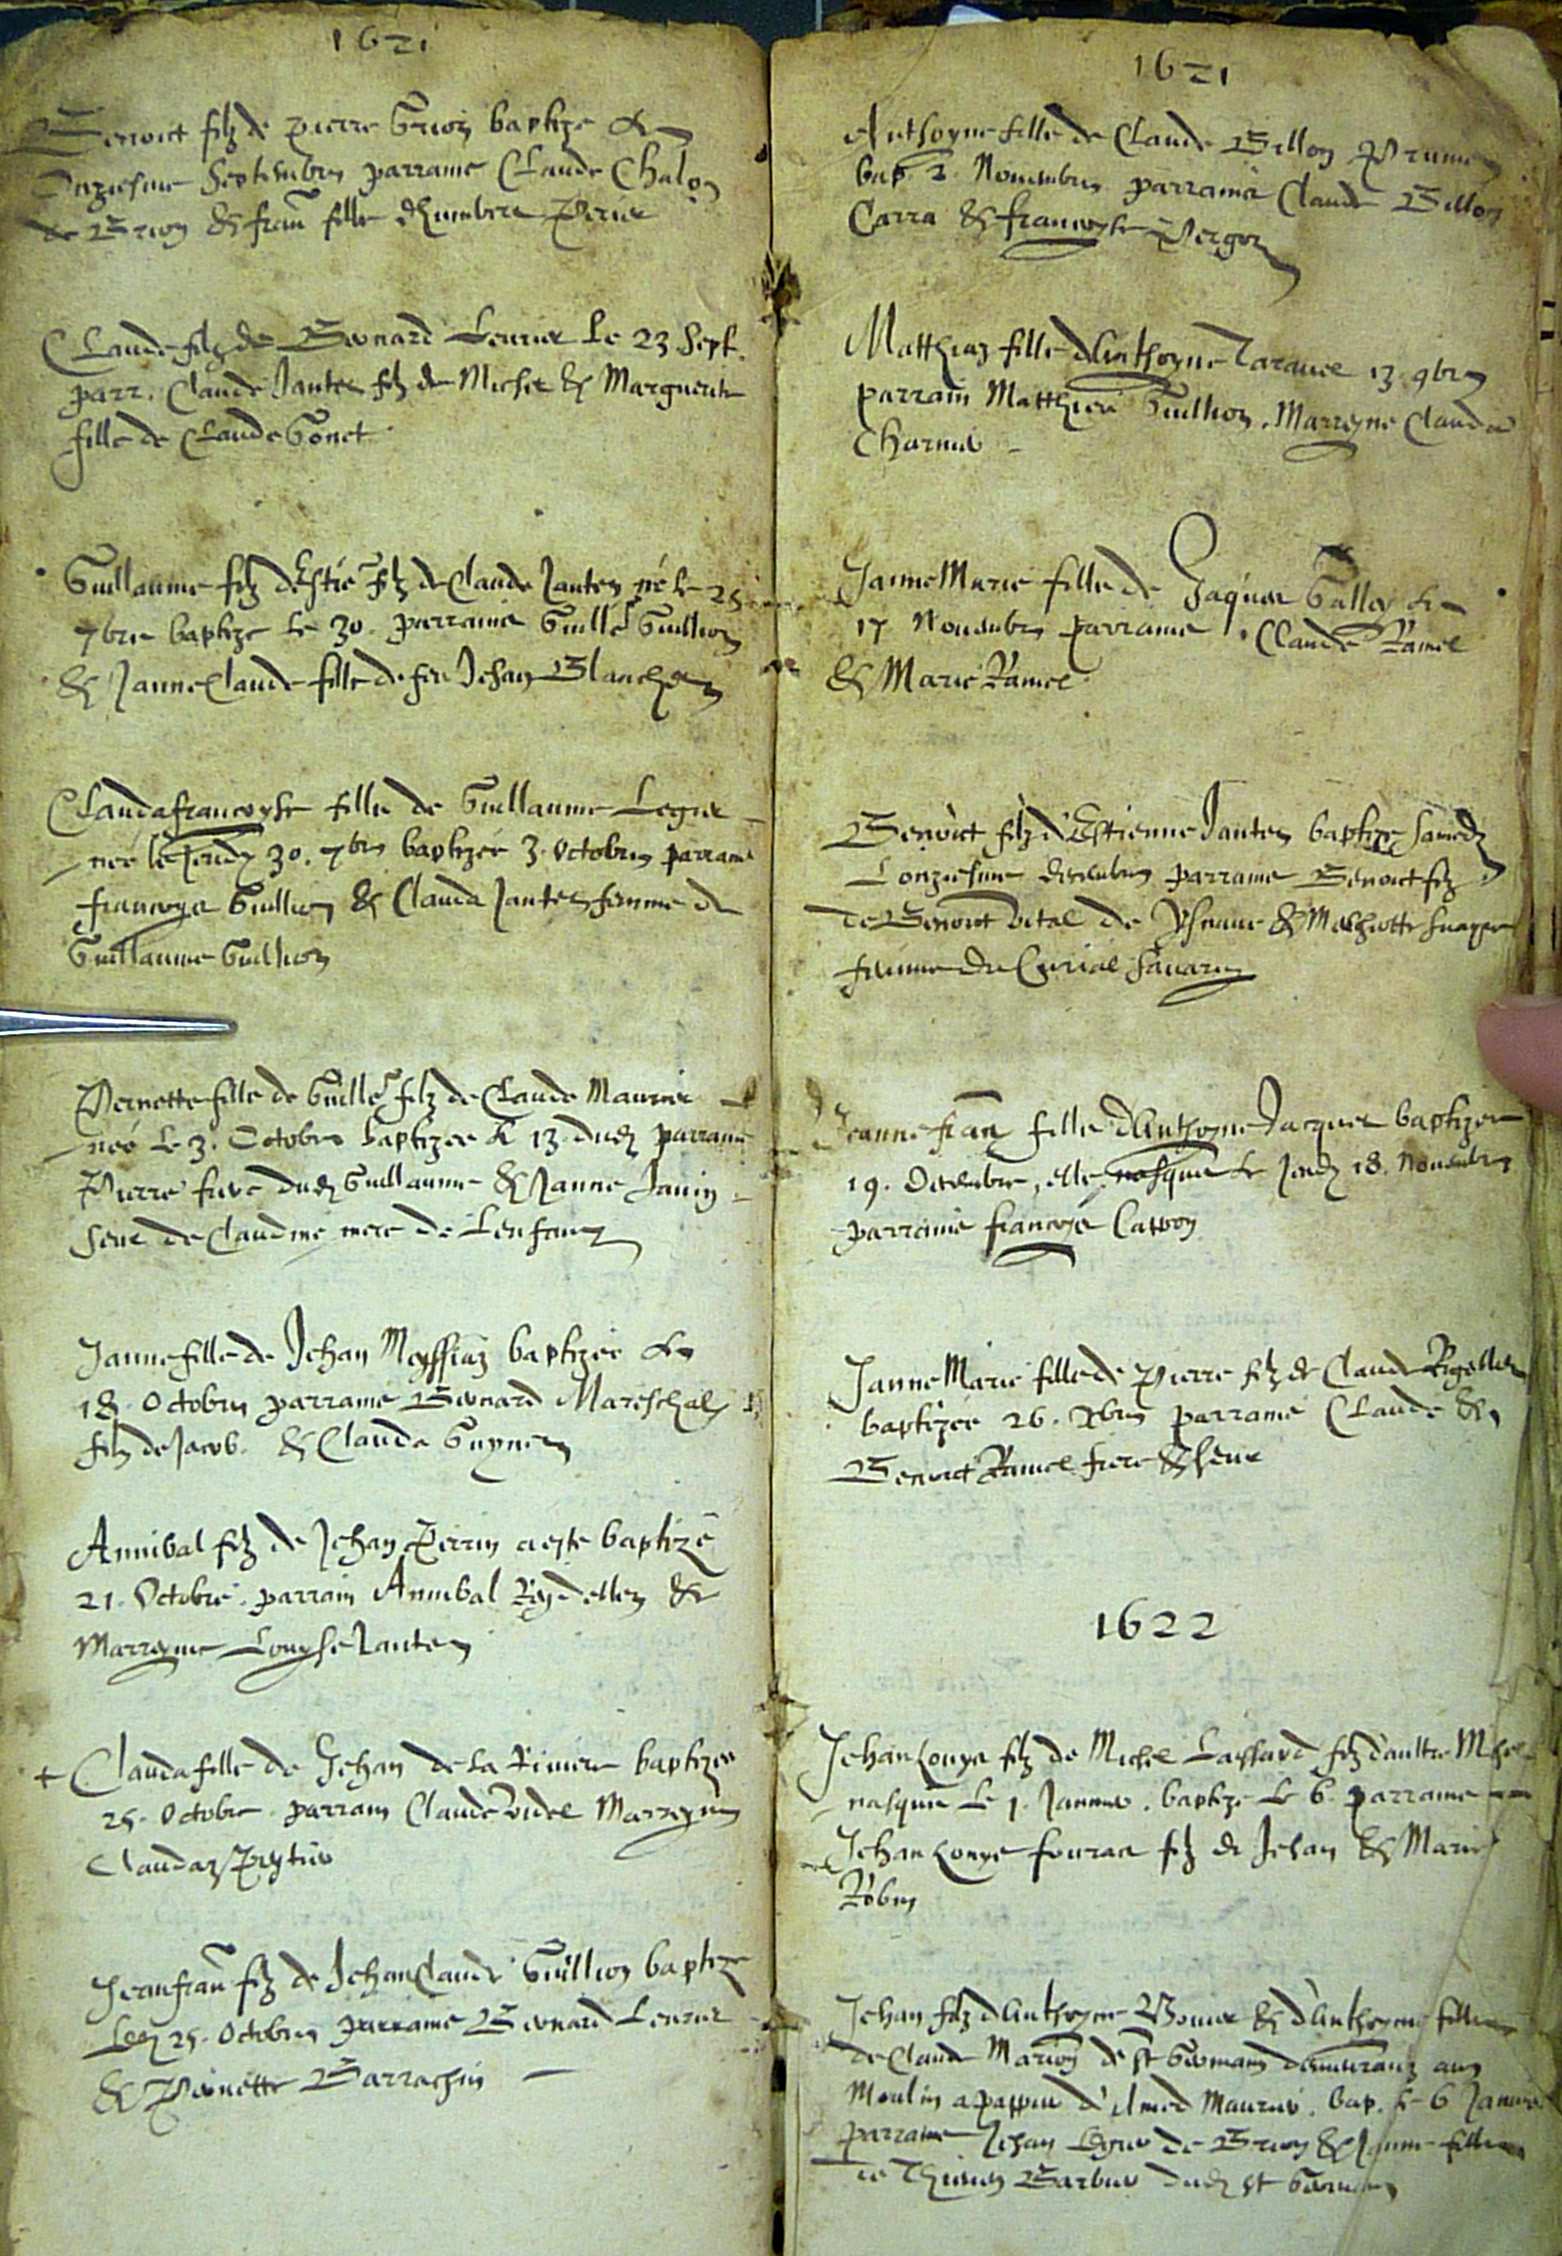 1621
Benoict filz de Pierre Grion baptize le
Onziesme Septembre parrame Claude Chalon
de Brion & Fran fille Pierre
Claude filz de Bernard Leurier Le 23 Sept.
parr. Claude Jantet filz de Michel & Marguerite
fille de Claude Gonet
Guillaume filz d'Estie filz de Claude Janten né le 25
7bre baptize le 30. parrame Guille Guillion
& Janne Claude fille de feu Jehan Blanchet
Clauda francoyse fille de Guillaume Legier
neé le 30. 7bre baptizeé 3. Octobre parrame
francoys Guillion & Clauda Janten femme de
Guillaume Guillion
Pernette fille de Guille filz de Claude Maurier
neé le 3. Octobre baptizee le 13. dudi parrame
Pierre frere dudi Guillaume & Janne Janin
seur de Claudine mere de Lenfant
Janne fille de Jehan Meyssiaz baptizeé le
18. Octobre parrame Bernard Mareschal
filz de Jacob. & Clauda Guynet
Annibal filz de Jehan Perrin a este baptizé
21. Octobre. parrain Annibal Reydellet &
Marreyne Louyse Janten
+ Clauda fille de Jehan de la Riviere baptizeé
25. Octobre. parrain Claude Videl Marreyne
Clauda
Jean fran filz de Jehan Claude Guillion baptize
25. Octobre parrame Bernard Leurier
& Pernette Barrachin
1621
Anthoyne fille de Claude Billon
bap. 2. Novembre parrame Claude Billon
Carra & francoyse Pergoz
Matthiaz fille d'Anthoyne Taravel 13. 9bre
parrain Matthieu Guillion. Marreyne Clauda
Charnie
Janne Marie fille de Jaques Galley le
17 Novembre parrame Claude Ramel
& Marie Ramel
Benoict filz d'Estienne Janten baptize Samedi
Lonziesme decembre parrame Benoict filz
de Benoict Vital de &
femme de Curial Savarin
Jeanne fran fille d'Anthoyne Jacquet baptizee
19. Decembre, elle nasquit le Jeudi 18. Novembre
parrame francoys Cappon
Janne Marie fille de Pierre filz de Claude
baptizeé 26. Xbre parrame Claude &
Benoict Ramel frere & seur
1622
Jehan Louys filz de Michel Lassard filz d'aultre Michel
nasquit Le 1. Janvier. baptize le 6. parrame
Jehan Louys fourat filz de Jehan & Marie
Robin
Jehan filz d'Anthoyne Bonier & d'Anthoyne fille
de Claude Marion de St Germain demeurant au
Moulin a pappier d'Aimed Maurier. bap. le 6 Janvier
parrame Jehan Legier de Brion & Janne fille
de Barbier dudi st Germain